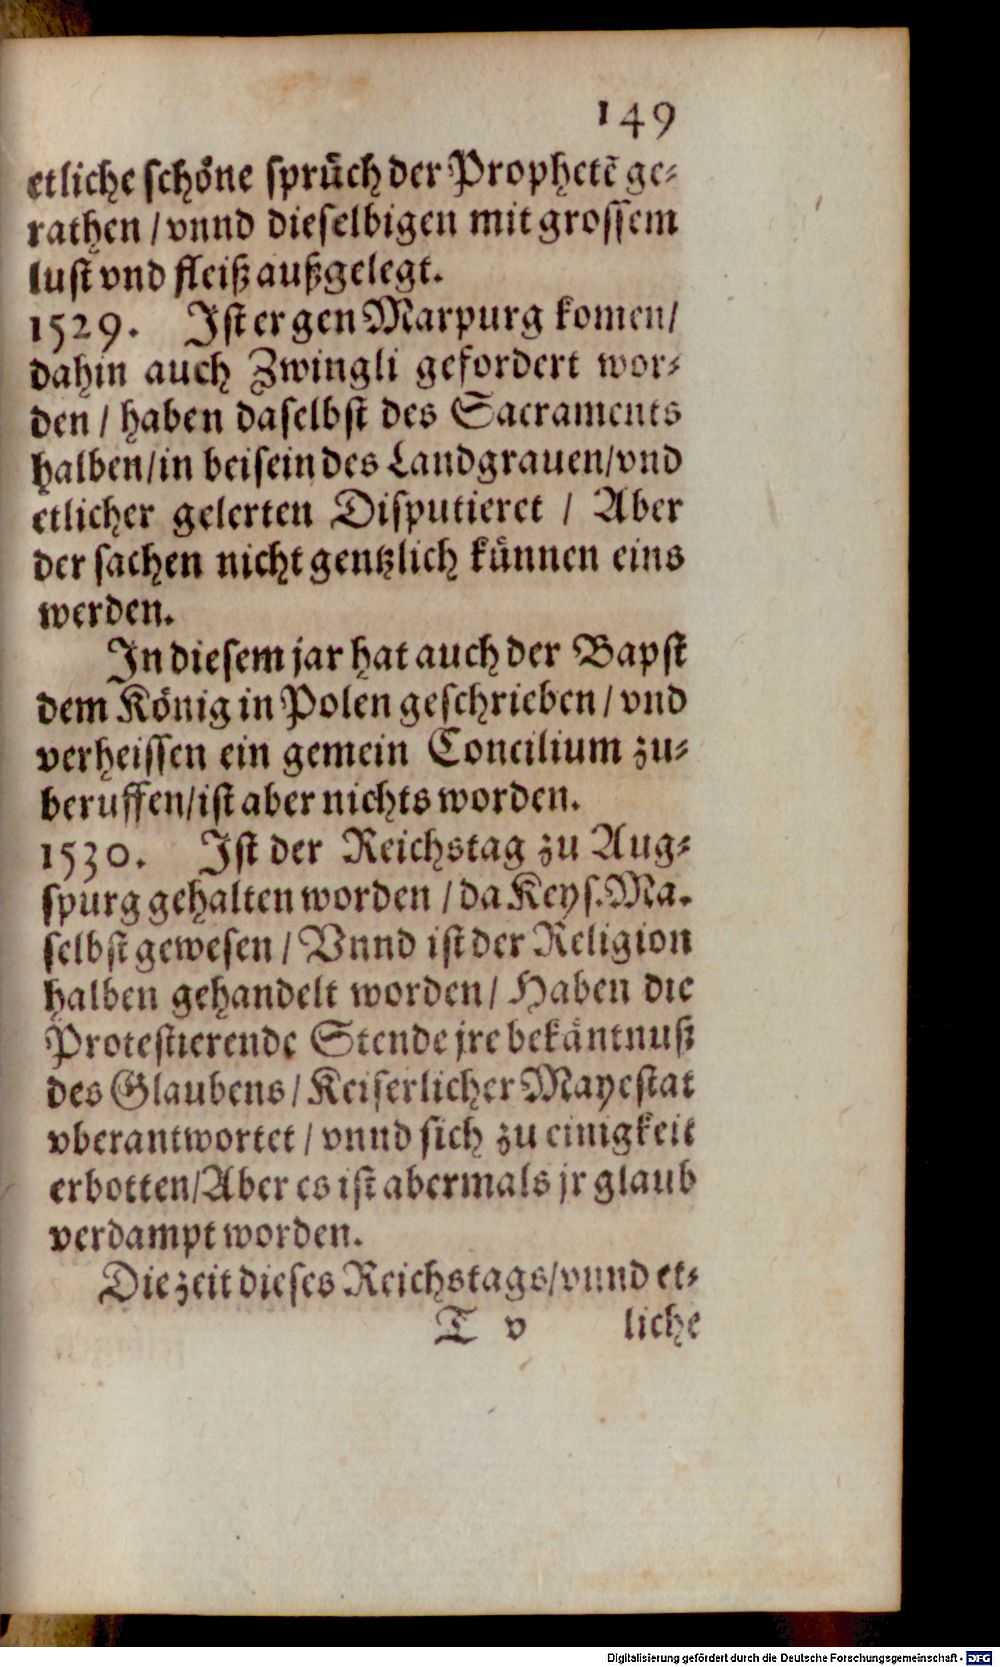 149
etliche schöne sprüch der Prophetẽ ge-
rathen / vnnd dieselbigen mit grossem
lust vnd fleiß außgelegt.
1529. Ist er gen Marpurg komen/
dahin auch Zwingli gefordert wor-
den / haben daselbst des Sacraments
halben/in beisein des Landgrauen/vnd
etlicher gelerten Disputieret / Aber
der sachen nicht gentzlich künnen eins
werden.
In diesem jar hat auch der Bapst
dem König in Polen geschrieben / vnd
verheissen ein gemein Concilium zu-
beruffen/ist aber nichts worden.
1530. Ist der Reichstag zu Aug-
spurg gehalten worden / da Keys. Ma.
selbst gewesen / Vnnd ist der Religion
halben gehandelt worden/ Haben die
Protestierende Stende jre bekäntnuß
des Glaubens / Keiserlicher Mayestat
vberantwortet / vnnd sich zu einigkeit
erbotten/Aber es ist abermals jr glaub
verdampt worden.
Die zeit dieses Reichstags/vnnd et-
T v liche
Digitalisierung gefördert durch die Deutsche Forschungsgemeinschaft - DFG